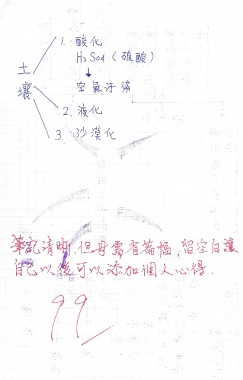 土壤
1. 酸化
H₂SO4 (硫酸)
空氣汙染
2. 液化
3. 沙漠化
筆記清晰，但毋需省篇幅，留空白讓
自己以後可以添加個人心得.
99